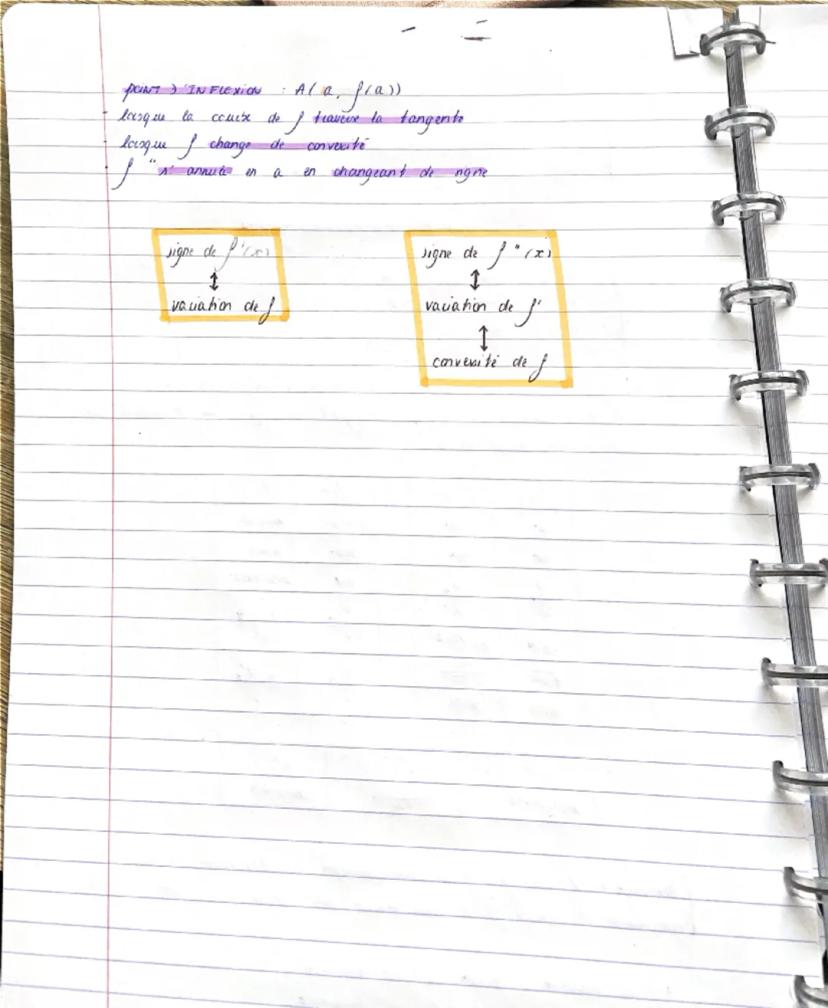 POINT D'INFLEXION : A(a, f(a))
lorsque la courbe de f traverse la tangente
lorsque f change de convexité
f " s'annule en a en changeant de signe
signe de f'(x)
↕
variation de f
signe de f"(x)
↕
variation de f'
↕
convexité de f